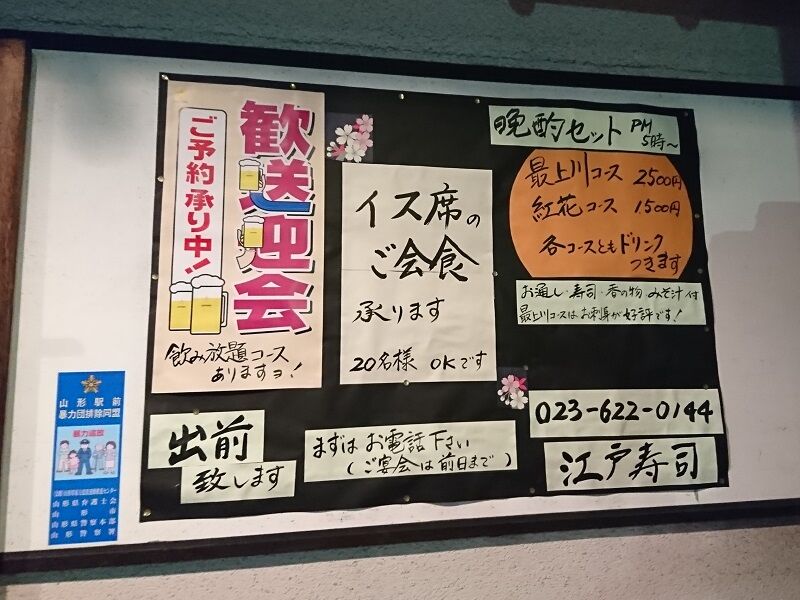 歓送迎会
ご予約承り中!
飲み放題コース
ありますヨ!
イス席の
ご会食
承ります
20名様 OKです
晩酌セット PM
5時～
最上川コース 2500円
紅花コース 1500円
各コースともドリンク
つきます
お通し・寿司・香の物 みそ汁付
最上川コースはお刺身が好評です!
出前
致します
まずはお電話下さい
(ご宴会は前日まで)
023-622-0144
江戸寿司
山形駅前
暴力団排除同盟
暴力追放
山形県弁護士会
山形市
山形県警察本部
山形警察署